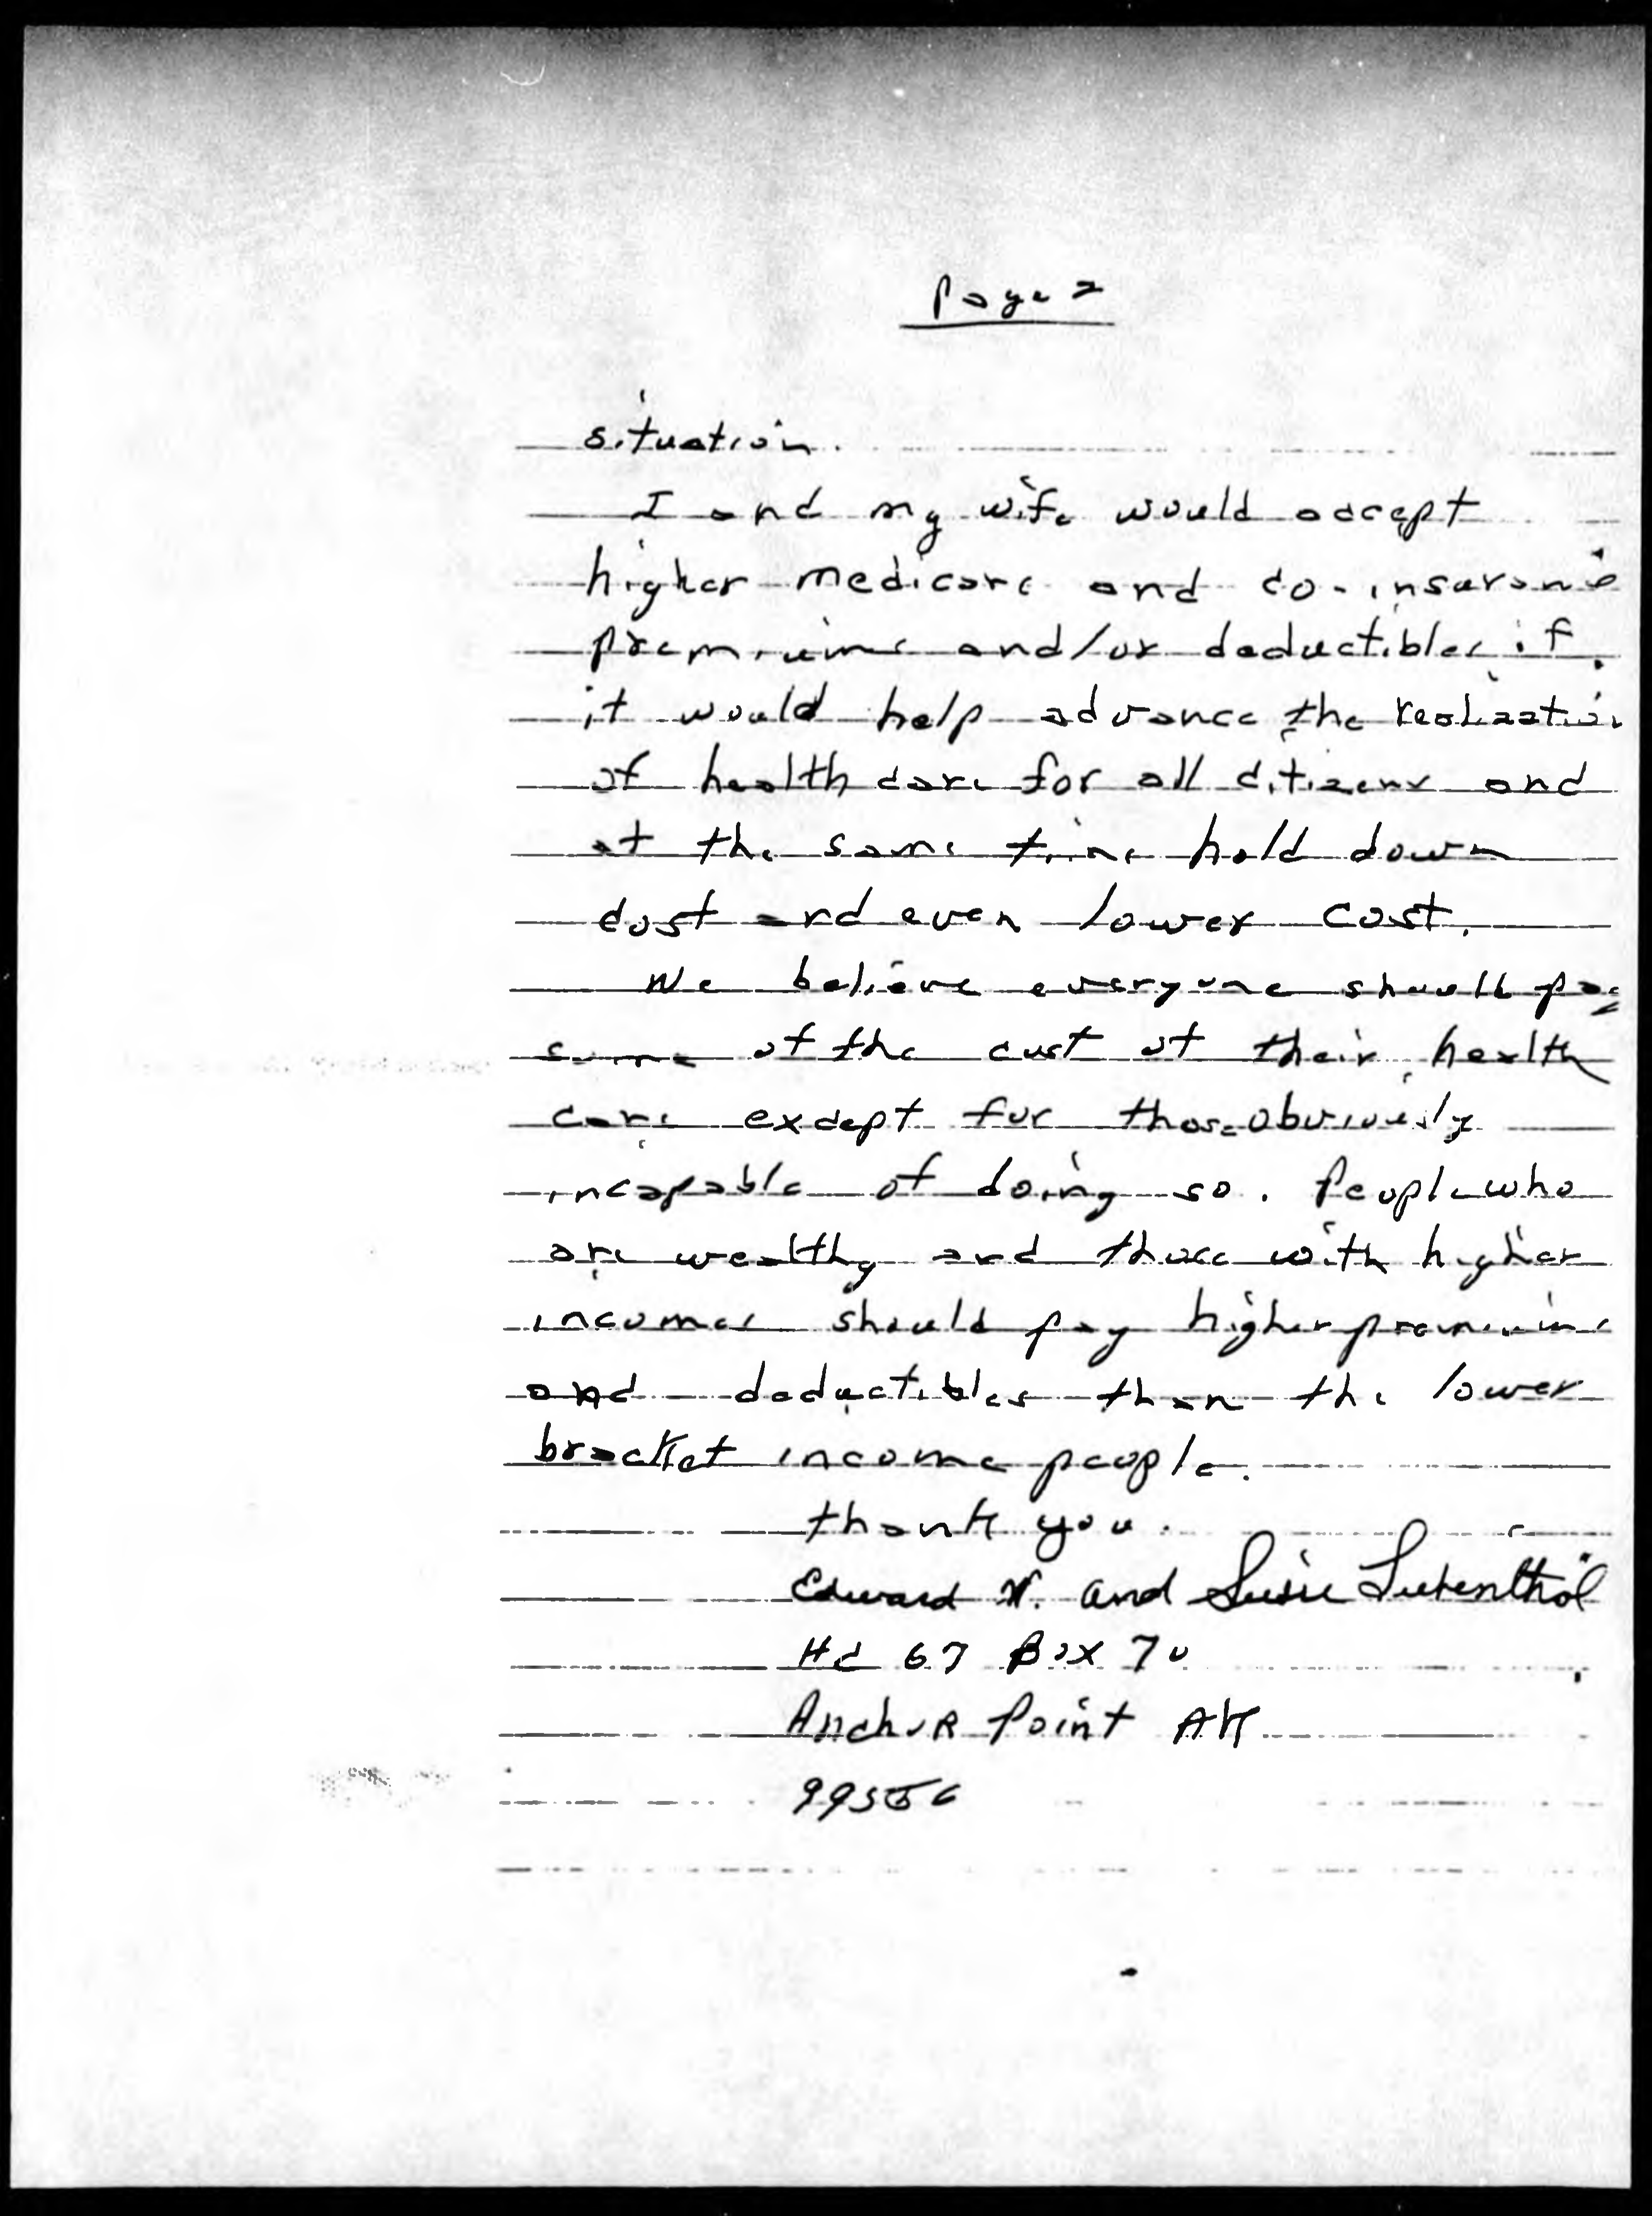 Page 2
situation.
I and my wife would accept
higher medicare and co-insurance
premiums and/or deductibles if
it would help advance the realization
of health care for all citizens and
at the same time hold down
cost and even lower cost.
We believe everyone should pay
some of the cost of their health
care except for those obviously
incapable of doing so. People who
are wealthy and those with higher
incomes should pay higher premiums
and deductibles than the lower
bracket income people.
thank you.
Edward W. and Susie
Hc 67 Box 70
Anchor Point AK
99556